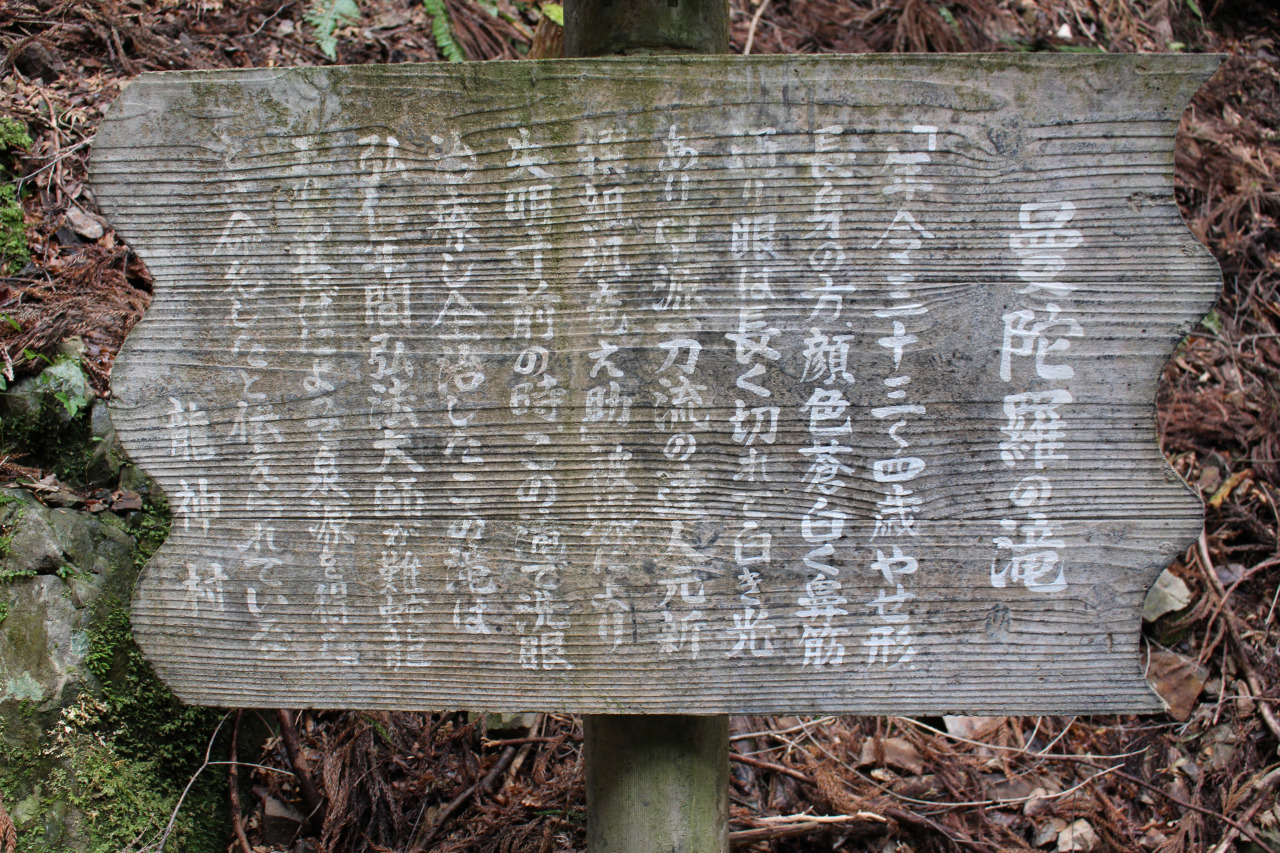 曼陀羅の滝
「年令三十三く四歳やせ形
長身の方顔色蒼白く鼻筋
通り眼は長く切れて白き光
あり甲源一刀流の達人元新
撰組机竜之助
失明寸前の時この滝で洗眼
治療し全治したこの滝は
弘仁年間弘法大師が難陀龍
王の
と命名したと伝えられている
龍神村